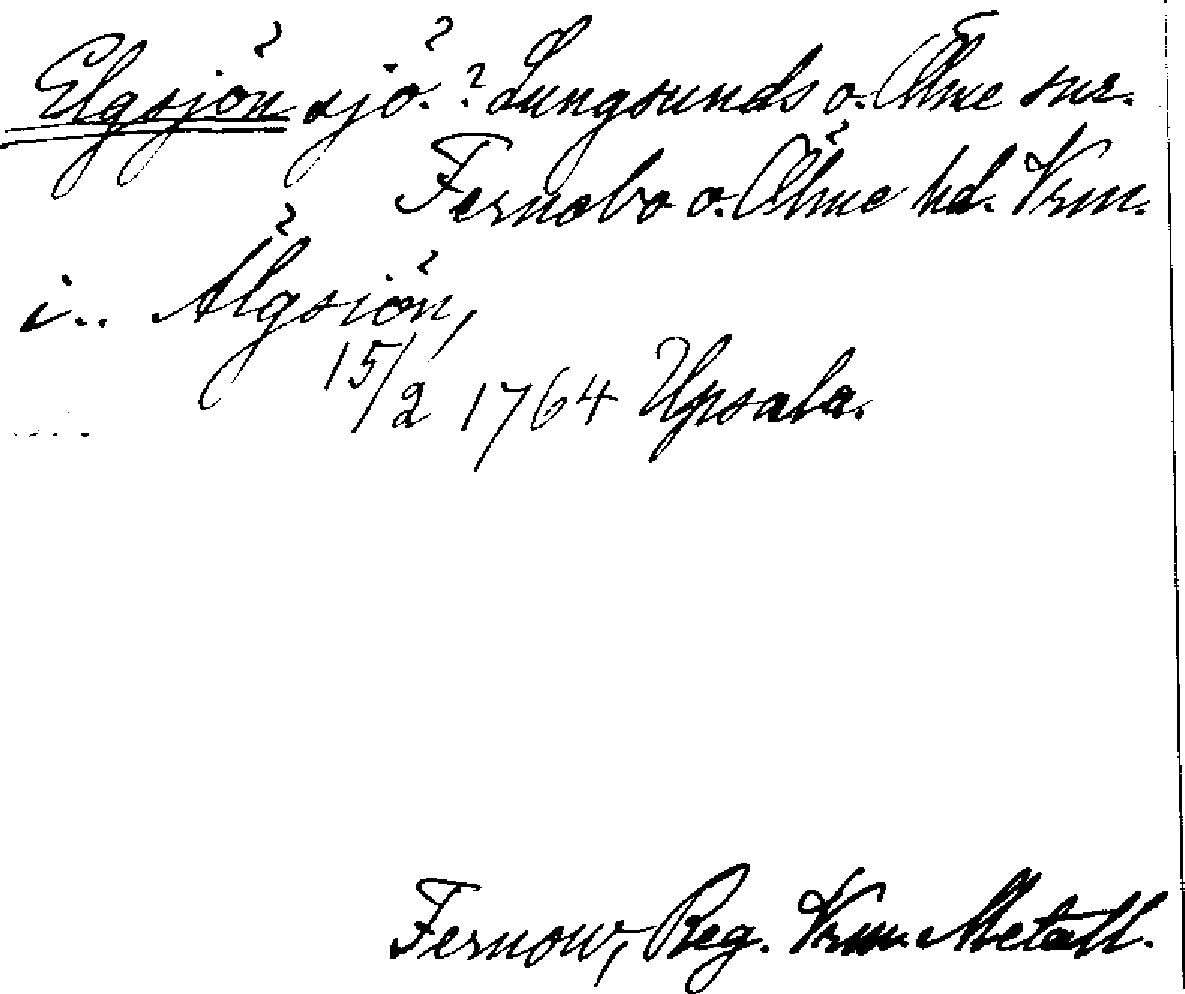 Elgsjön sjö.? Lungsunds o. Ölme snr.
Fernebo o. Ölme hd. Vrm.
i.. Älgsiön,
15/2 1764 Upsala.
Fernow, Reg. Vrm. Metall.